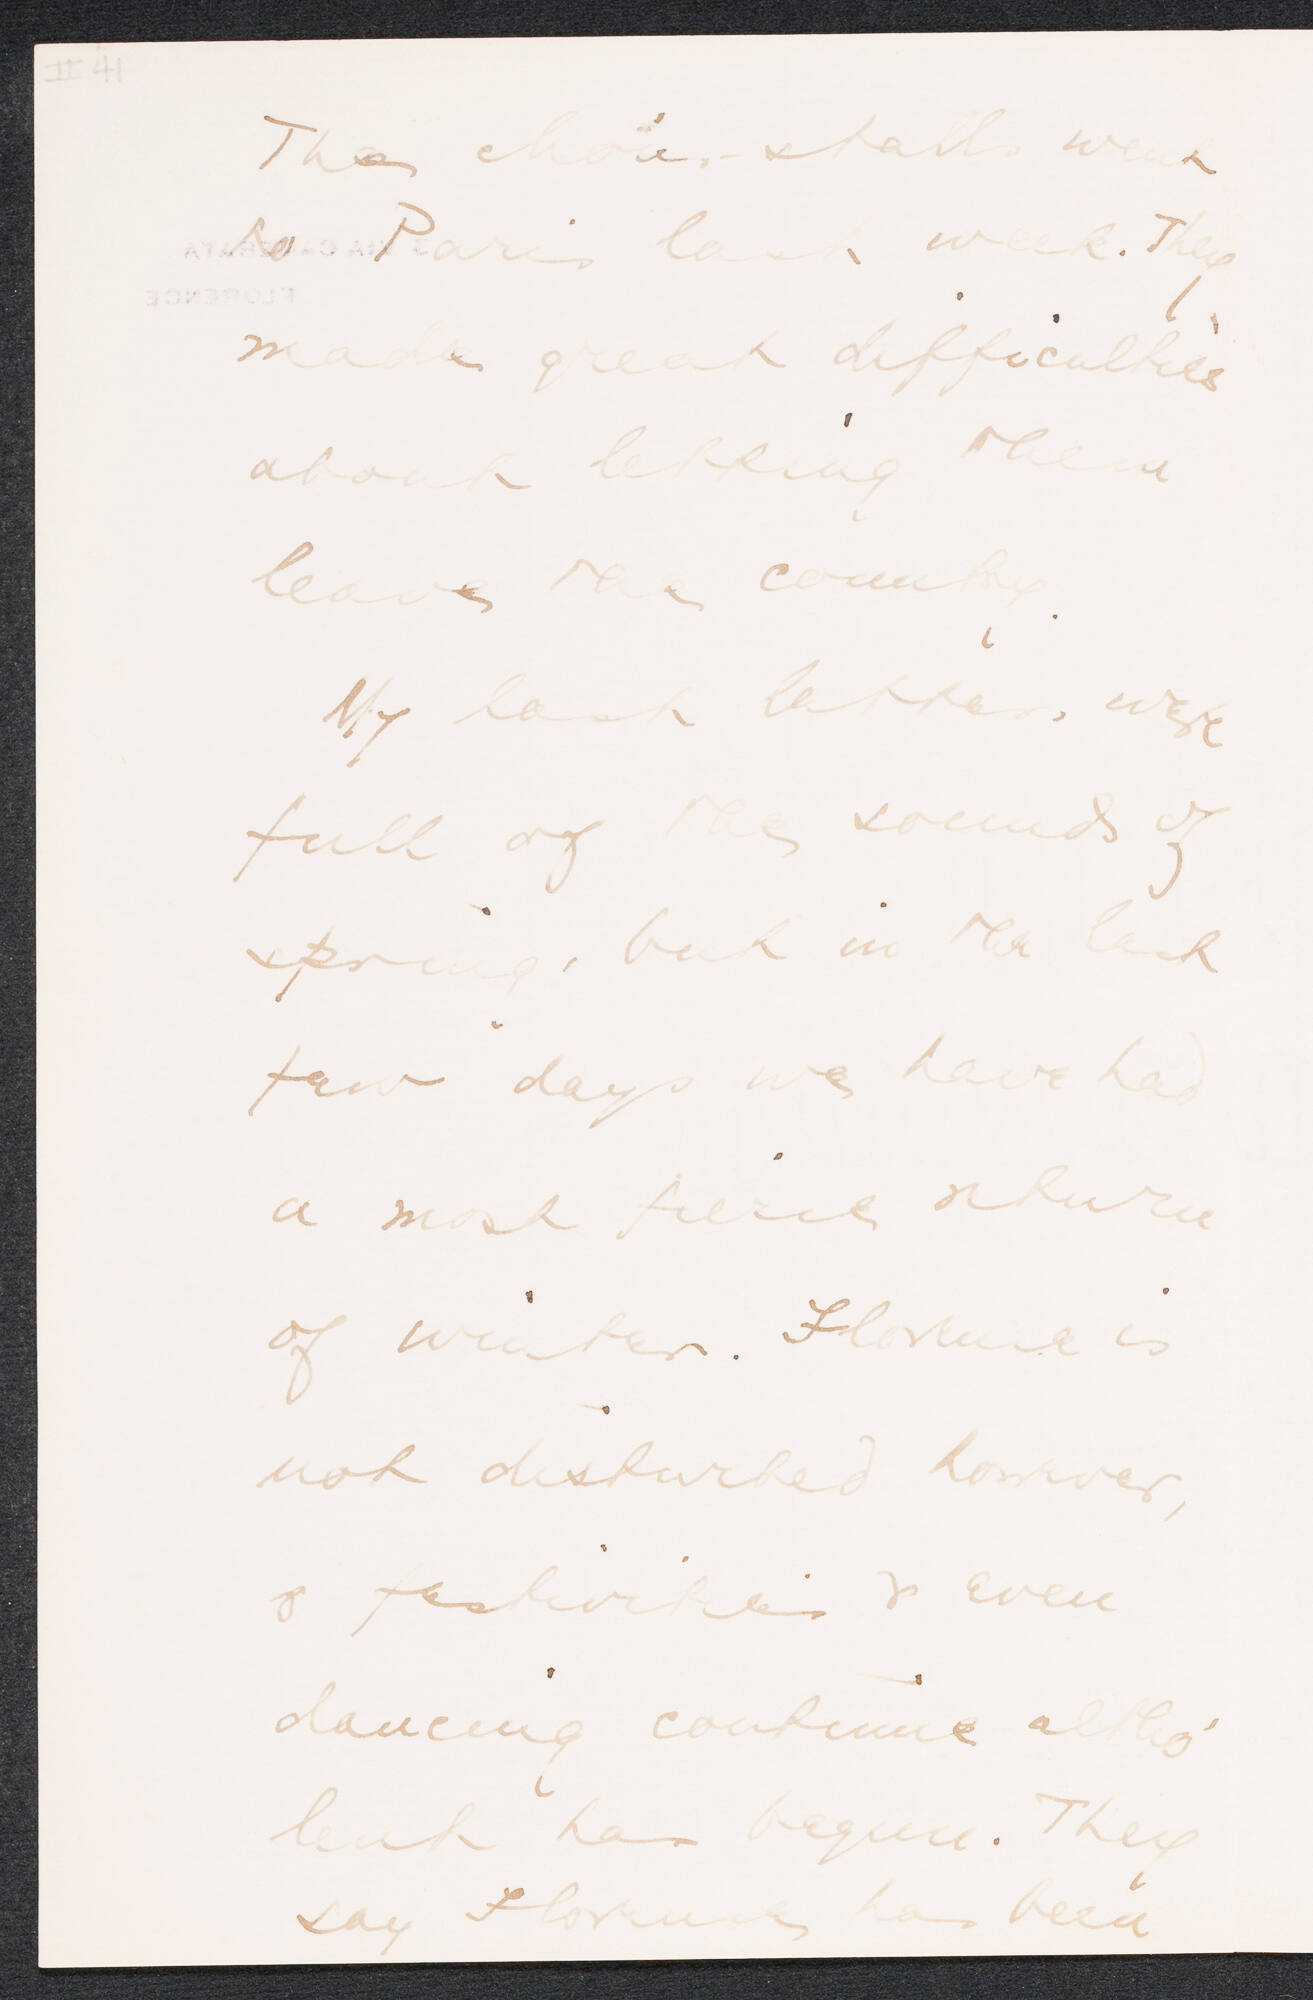 II 41
The choir-stalls went
to Paris last week. They
made great difficulties
about letting them
leave the country.
My last letters were
full of the sounds of
spring, but in the last
few days we have had
a most fierce return
of winter. Florence is
not disturbed however,
& festivities & even
dancing continue altho'
lent has begun. They
say Florence has been
3 VIA CAMERATA
FLORENCE